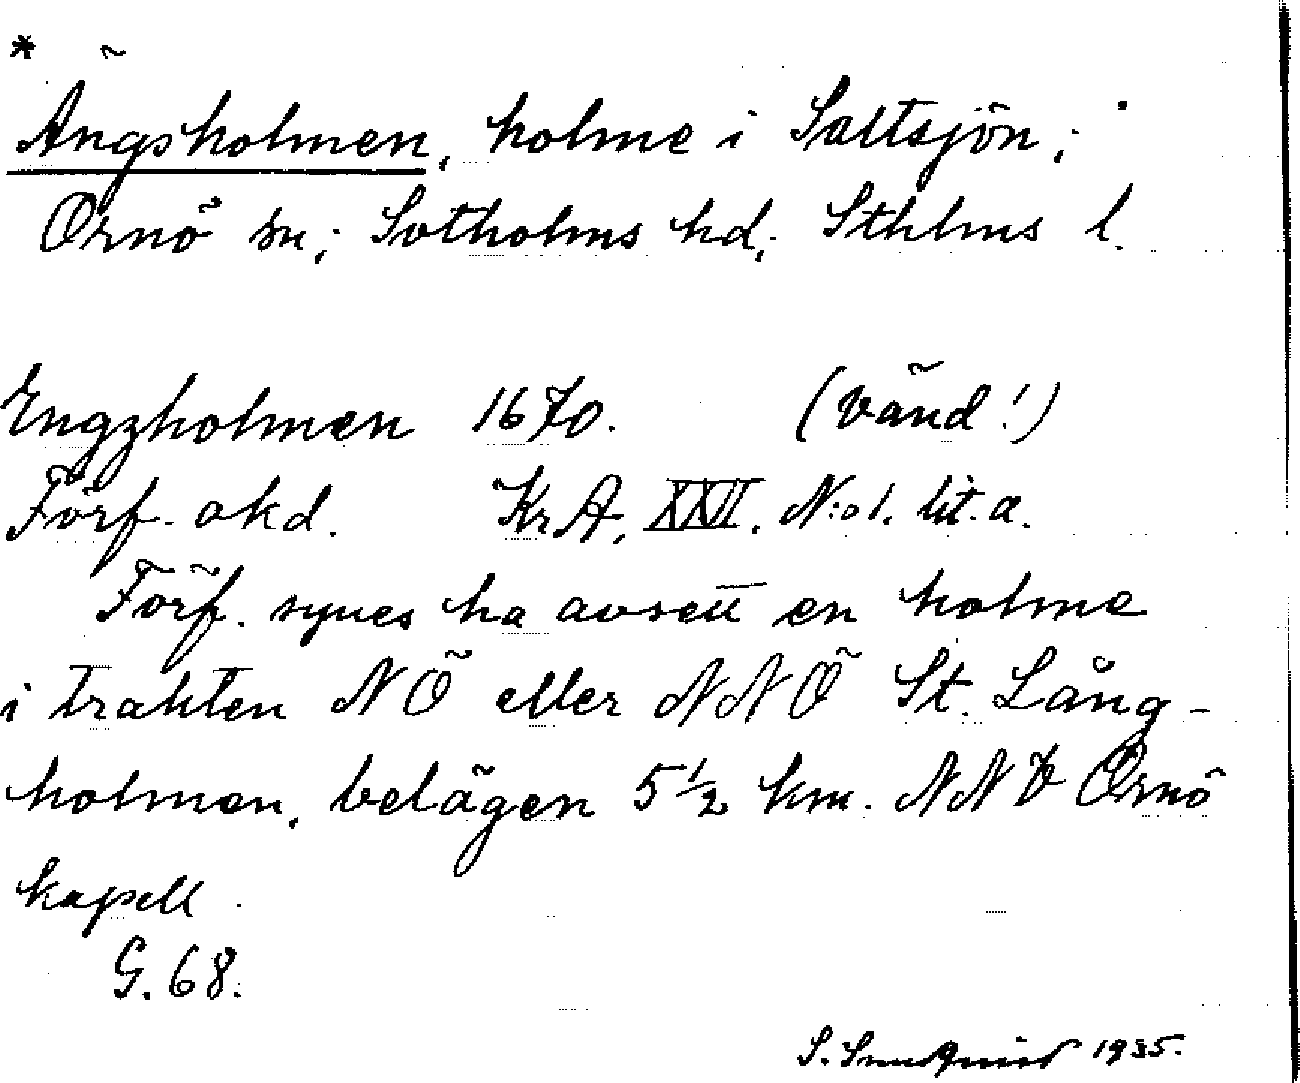 * Ängsholmen, holme i Saltsjön;
Ornö sn; Sotholms hd; Sthlms l.
Engzholmen 1670. (Vänd!)
Förf. okd. KrA, XXVI. N:o 1. lit. a.
Förf. synes ha avsett en holme
i trakten NÖ eller NNÖ St. Lång-
holmen, belägen 5 1/2 km. NNV Ornö
kapell.
G. 68.
S. 1935.